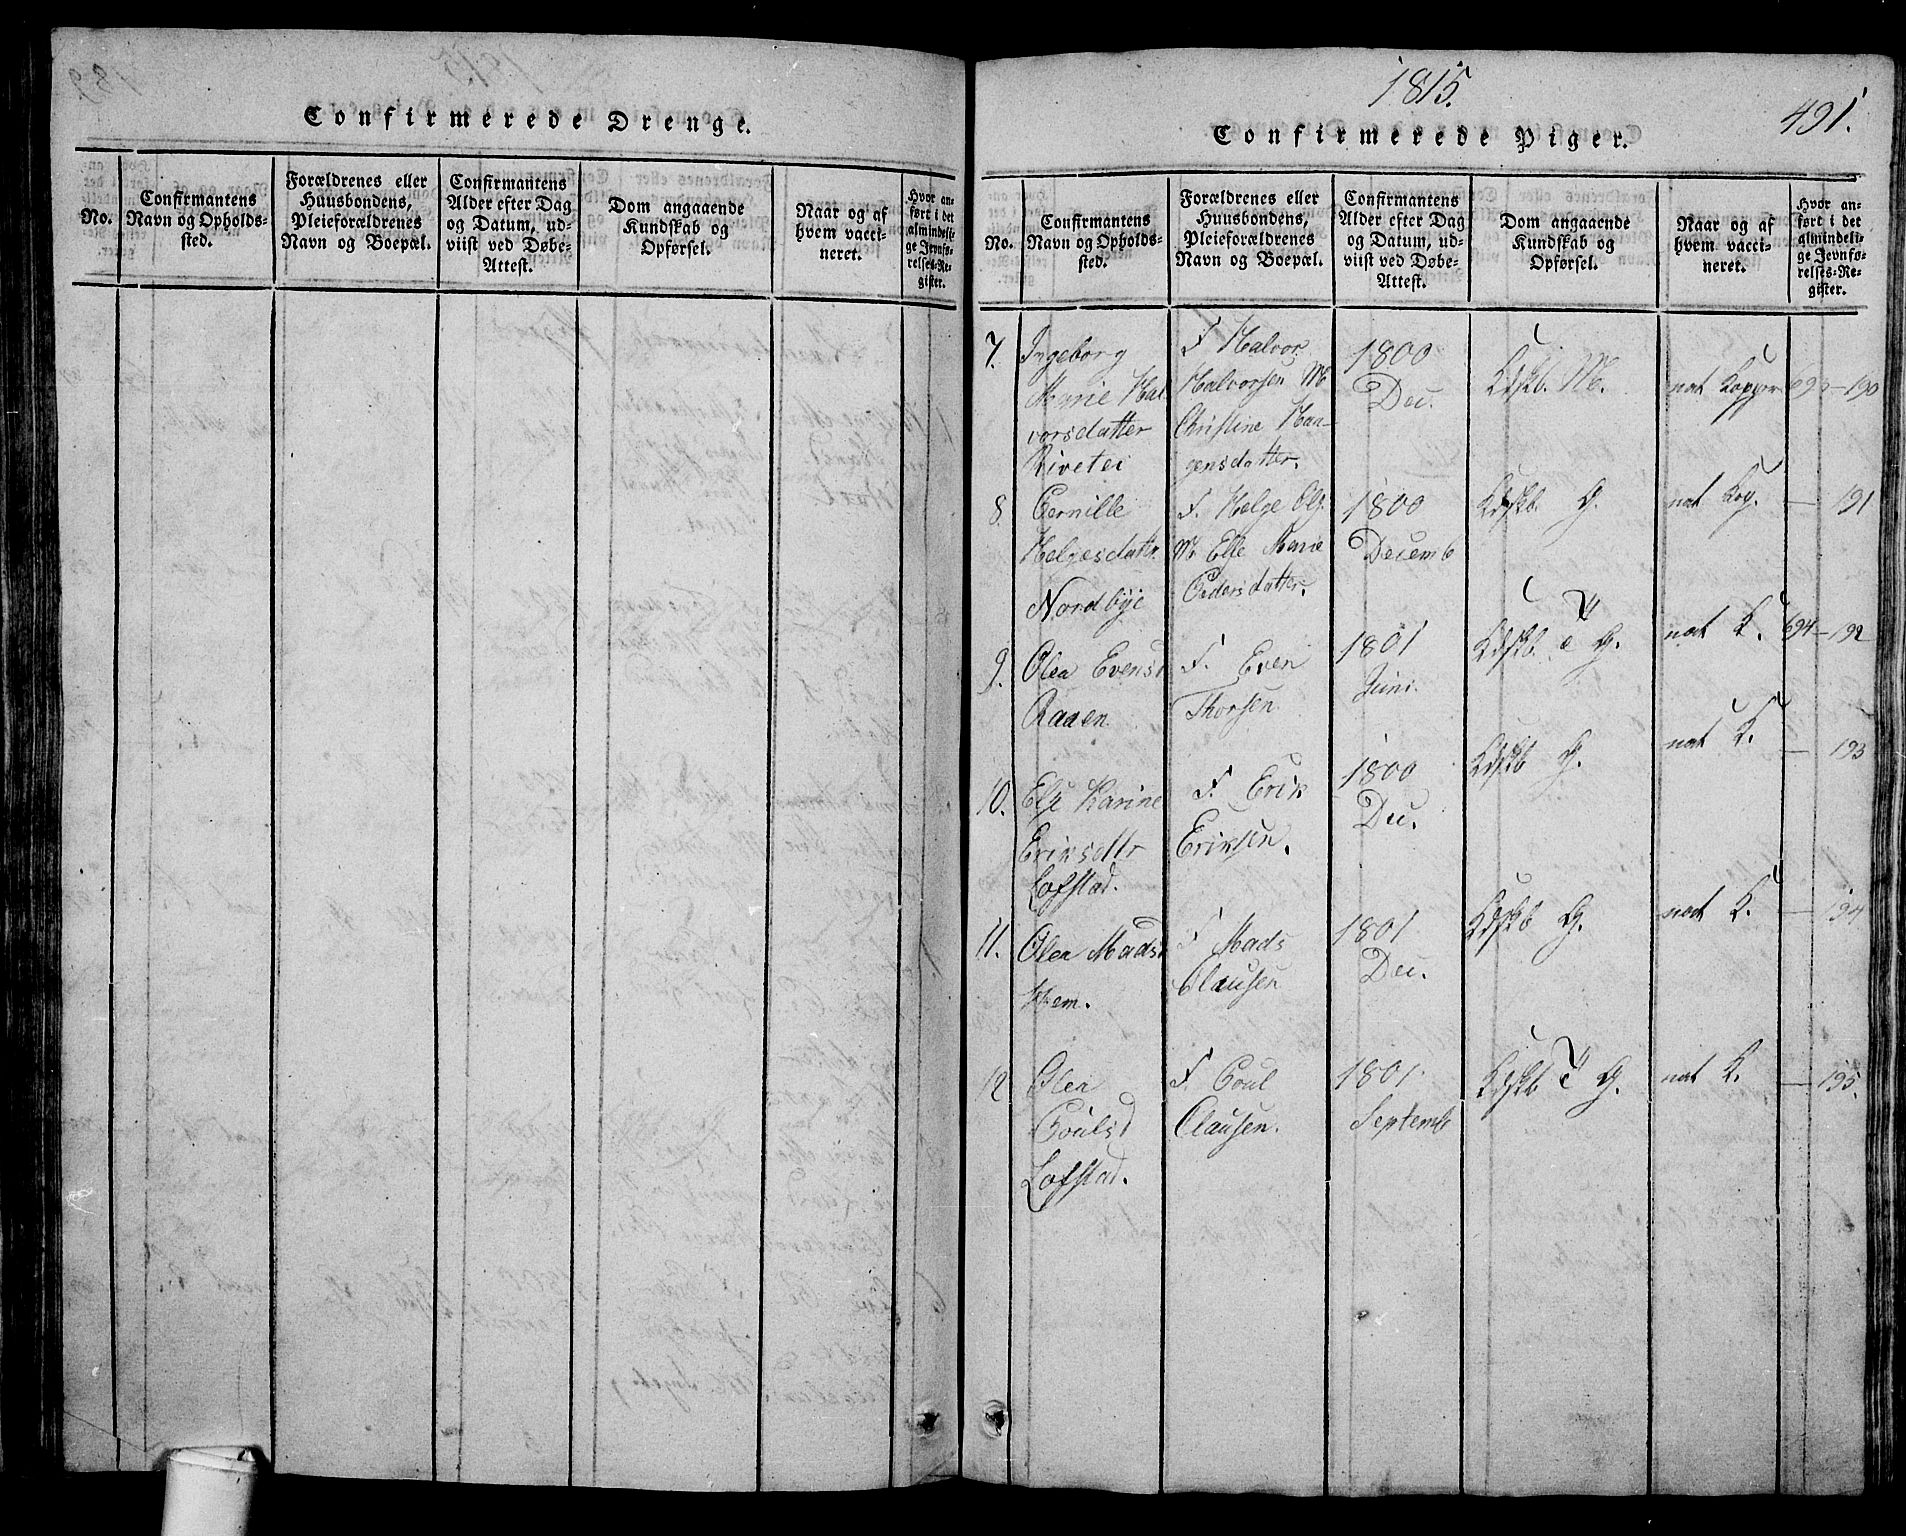 Confirmerede Drenge.
No.
Confirmantens
Navn og Opholds-
sted.
Forældrenes eller
Huusbondens,
Pleieforældrenes
Navn og Boepæl.
Confirmantens
Alder efter Dag
og Datum, ud-
viist ved Døbe-
Attest.
Dom angaaende
Kundskab og
Opførsel.
Naar og af
hvem vacci-
neret.
Hvor an-
ført i det
almindeli-
ge Jevnfø-
relses-Re-
gister.
1815.
491.
Confirmerede Piger.
No.
Confirmantens
Navn og Opholds-
sted.
Forældrenes eller
Huusbondens,
Pleieforældrenes
Navn og Boepæl.
Confirmantens
Alder efter Dag
og Datum, ud-
viist ved Døbe-
Attest.
Dom angaaende
Kundskab og
Opførsel.
Naar og af
hvem vacci-
neret.
Hvor an-
ført i det
almindeli-
ge Jevnfø-
relses-Re-
gister.
7. Ingeborg
Marie Hal
vorsdatter
F. Halvor
Halvorsen M
Christine Han-
gensdatter.
1800
Dec.
Kdskb. M.
nat Kopper
693-190
8. Pernille
Helgesdatr.
Nordbye
F. Helge Ols.
M. Else Marie
Pedersdatter.
1800
Decemb
Kdskb. G.
nat Kop.
— 191
9. Olea Evensd
Raaen
F. Even
Thorsen
1801
Juni.
Kdskb. G.
nat K.
694-192
10. Else Karine
Eriksdtr
Lofstad.
F. Erik
Eriksen.
1800
Dec.
Kdskb G.
nat K.
— 193
11. Olea Madsd
Hem.
F. Mads
Clausen
1801
Dec.
Kdskb G.
nat K.
— 194
12 Olea
Poulsd
Lofstad.
F. Poul
Clausen.
1801
Septemb
Kdskb. G.
nat K.
— 195.